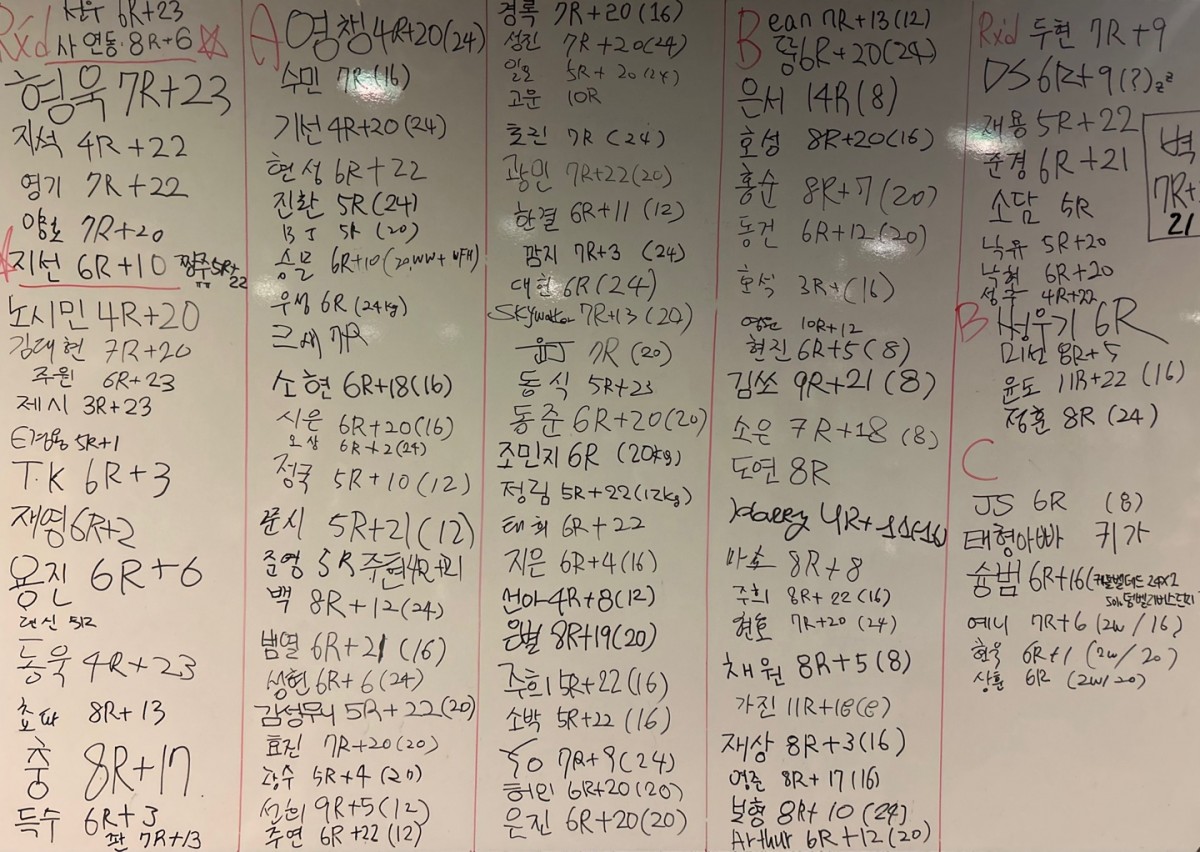 선우 6R+23
Rxd 사 연동 8R+6
형욱 7R+23
지석 4R+22
영기 7R+22
양호 7R+20
지선 6R+10 짱주 5R+22 ㅠㅠ
노시민 4R+20
김대현 7R+20
주원 6R+23
제시 3R+23
E경용 5R+1
T.K 6R+3
재영 6R+2
용진 6R+6
대신 5R
동욱 4R+23
초파 8R+13
충 8R+17
득수 6R+3
판 7R+13
A 영창 4R+20(24)
수민 7R(16)
기선 4R+20(24)
현성 6R+22
진환 5R(24)
BJ 5R (20)
승물 6R+10
우생 6R(24kg)
크새 7R
소현 6R+18(16)
시은 6R+20(16)
오상 6R+2(24)
정국 5R+10(12)
문시 5R+21(12)
준영 5R 주현 4R+21
백 8R+12(24)
범열 6R+21(16)
성현 6R+6(24)
김성무니 5R+22(20)
효진 7R+20(20)
광수 5R+4(20)
선희 9R+5(12)
주연 6R+22(12)
경록 7R+20(16)
성진 7R+20(24)
일오 5R+20(24)
고문 10R
효진 7R (24)
광민 7R+22(20)
한결 6R+11(12)
깜지 7R+3 (24)
대현 6R(24)
Skywalker 7R+13(20)
윤J 7R(20)
동식 5R+23
동준 6R+20(20)
조민지 6R (20kg)
정림 5R+22(12kg)
태희 6R+22
지은 6R+4(16)
선아 4R+8(12)
은별 8R+19(20)
주희 5R+22(16)
소박 5R+22(16)
Yo 7R+9(24)
허민 6R+20(20)
은진 6R+20(20)
B ean 7R+13(12)
뚱 6R+20(24)
은서 14R(8)
호성 8R+20(16)
홍순 8R+7(20)
동건 6R+12(20)
호석 3R+(16)
영원 10R+12
현진 6R+5(8)
김쏘 9R+21(8)
소은 7R+18(8)
도연 8R
Harry 4R+11(16)
마초 8R+8
주희 8R+22(16)
현호 7R+20(24)
채원 8R+5(8)
가진 11R+18(8)
재상 8R+3(16)
영준 8R+17(16)
보형 8R+10(24)
Arthur 6R+12(20)
Rxd 두현 7R+9
DS 6R+9(?)zz
재용 5R+22
준경 6R+21
소담 5R
낙유 5R+20
낙희 6R+20
성주 4R+22
벽
7R+
21
B 서우기 6R
미선 8R+5
윤도 11R+22(16)
정훈 8R(24)
C
JS 6R (8)
태형아빠 귀가
슝범 6R+16(케틀벨데드 24x2
예니 7R+6(2w/16)
현욱 6R+1(2w/20)
상훈 6R (2w/20)